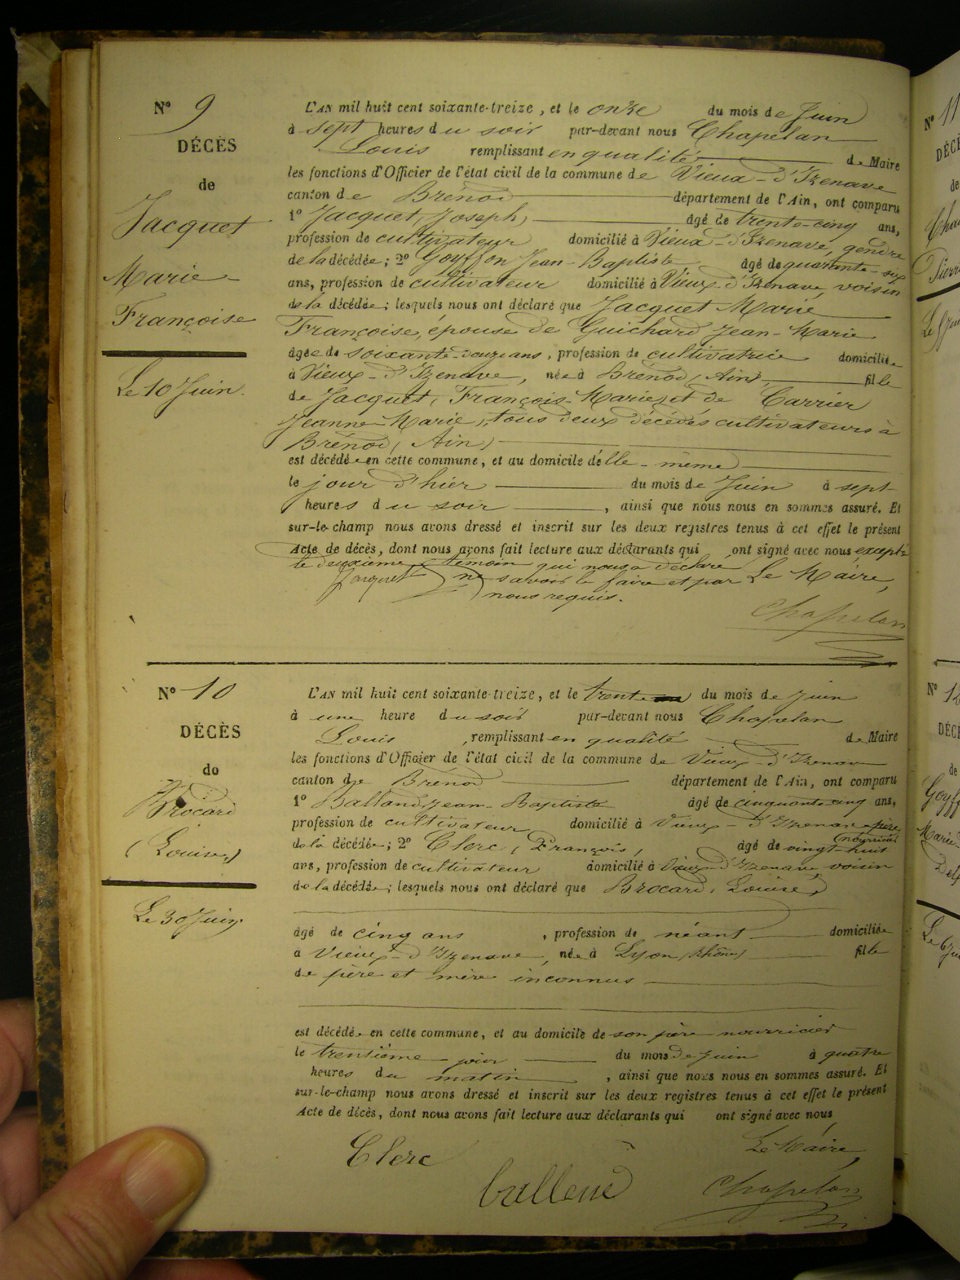 N° 9
DÉCÈS
de
Jacquet
Marie
Françoise
Le 10 Juin.
L'AN mil huit cent soixante-treize, et le onze du mois de Juin
à sept heures du soir par-devant nous Chapelan
Louis remplissant en qualité de Maire
les fonctions d'Officier de l'état civil de la commune de Vieux-d'Izenave
canton de Brénod département de l'Ain, ont comparu
1° Jacquet, Joseph, âgé de trente-cinq ans,
profession de cultivateur domicilié à Vieux-d'Izenave, gendre
de la décédée; 2° Goyffon Jean-Baptiste âgé de quarante-six
ans, profession de cultivateur domicilié à Vieux-d'Izenave, voisin
de la décédée; lesquels nous ont déclaré que Jacquet Marie
Françoise, épouse de Guichard Jean-Marie
âgée de soixante-douze ans, profession de cultivatrice domiciliée
à Vieux-d'Izenave, née à Brénod (Ain), fille
de Jacquet, François-Marie, et de Carrier
Jeanne-Marie, tous deux décédés cultivateurs à
Brénod (Ain)
est décédée en cette commune, et au domicile d'elle-même
le jour d'hier du mois de Juin à sept
heures du soir, ainsi que nous nous en sommes assuré. Et
sur-le-champ nous avons dressé et inscrit sur les deux registres tenus à cet effet le présent
Acte de décès, dont nous avons fait lecture aux déclarants qui ont signé avec nous excepté
le deuxième témoin qui nous a déclaré
Jacquet ne savoir le faire et par Le Maire,
nous requis.
Chapelan
N° 10
DÉCÈS
de
Brocard
(Louise)
Le 30 Juin
L'AN mil huit cent soixante-treize, et le trente du mois de Juin
à une heure du soir par-devant nous Chapelan
Louis, remplissant en qualité de Maire
les fonctions d'Officier de l'état civil de la commune de Vieux-d'Izenave
canton de Brénod département de l'Ain, ont comparu
1° Balland, Jean-Baptiste âgé de cinquante-cinq ans,
profession de cultivateur domicilié à Vieux-d'Izenave père
nourricier
de la décédée; 2° Clerc, François, âgé de vingt huit
ans, profession de cultivateur domicilié à Vieux-d'Izenave, voisin
de la décédée; lesquels nous ont déclaré que Brocard, Louise,
âgé de cinq ans, profession de néant domiciliée
à Vieux-d'Izenave, née à Lyon (Rhône) fille
de père et mère inconnus
est décédée en cette commune, et au domicile de son père nourricier
le trentième jour du mois de Juin à quatre
heures du matin, ainsi que nous nous en sommes assuré. Et
sur-le-champ nous avons dressé et inscrit sur les deux registres tenus à cet effet le présent
Acte de décès, dont nous avons fait lecture aux déclarants qui ont signé avec nous
Le Maire,
Clerc
Chapelan
N° 11
DÉC
de
N° 12
DÉC
de
Goyff
Marie